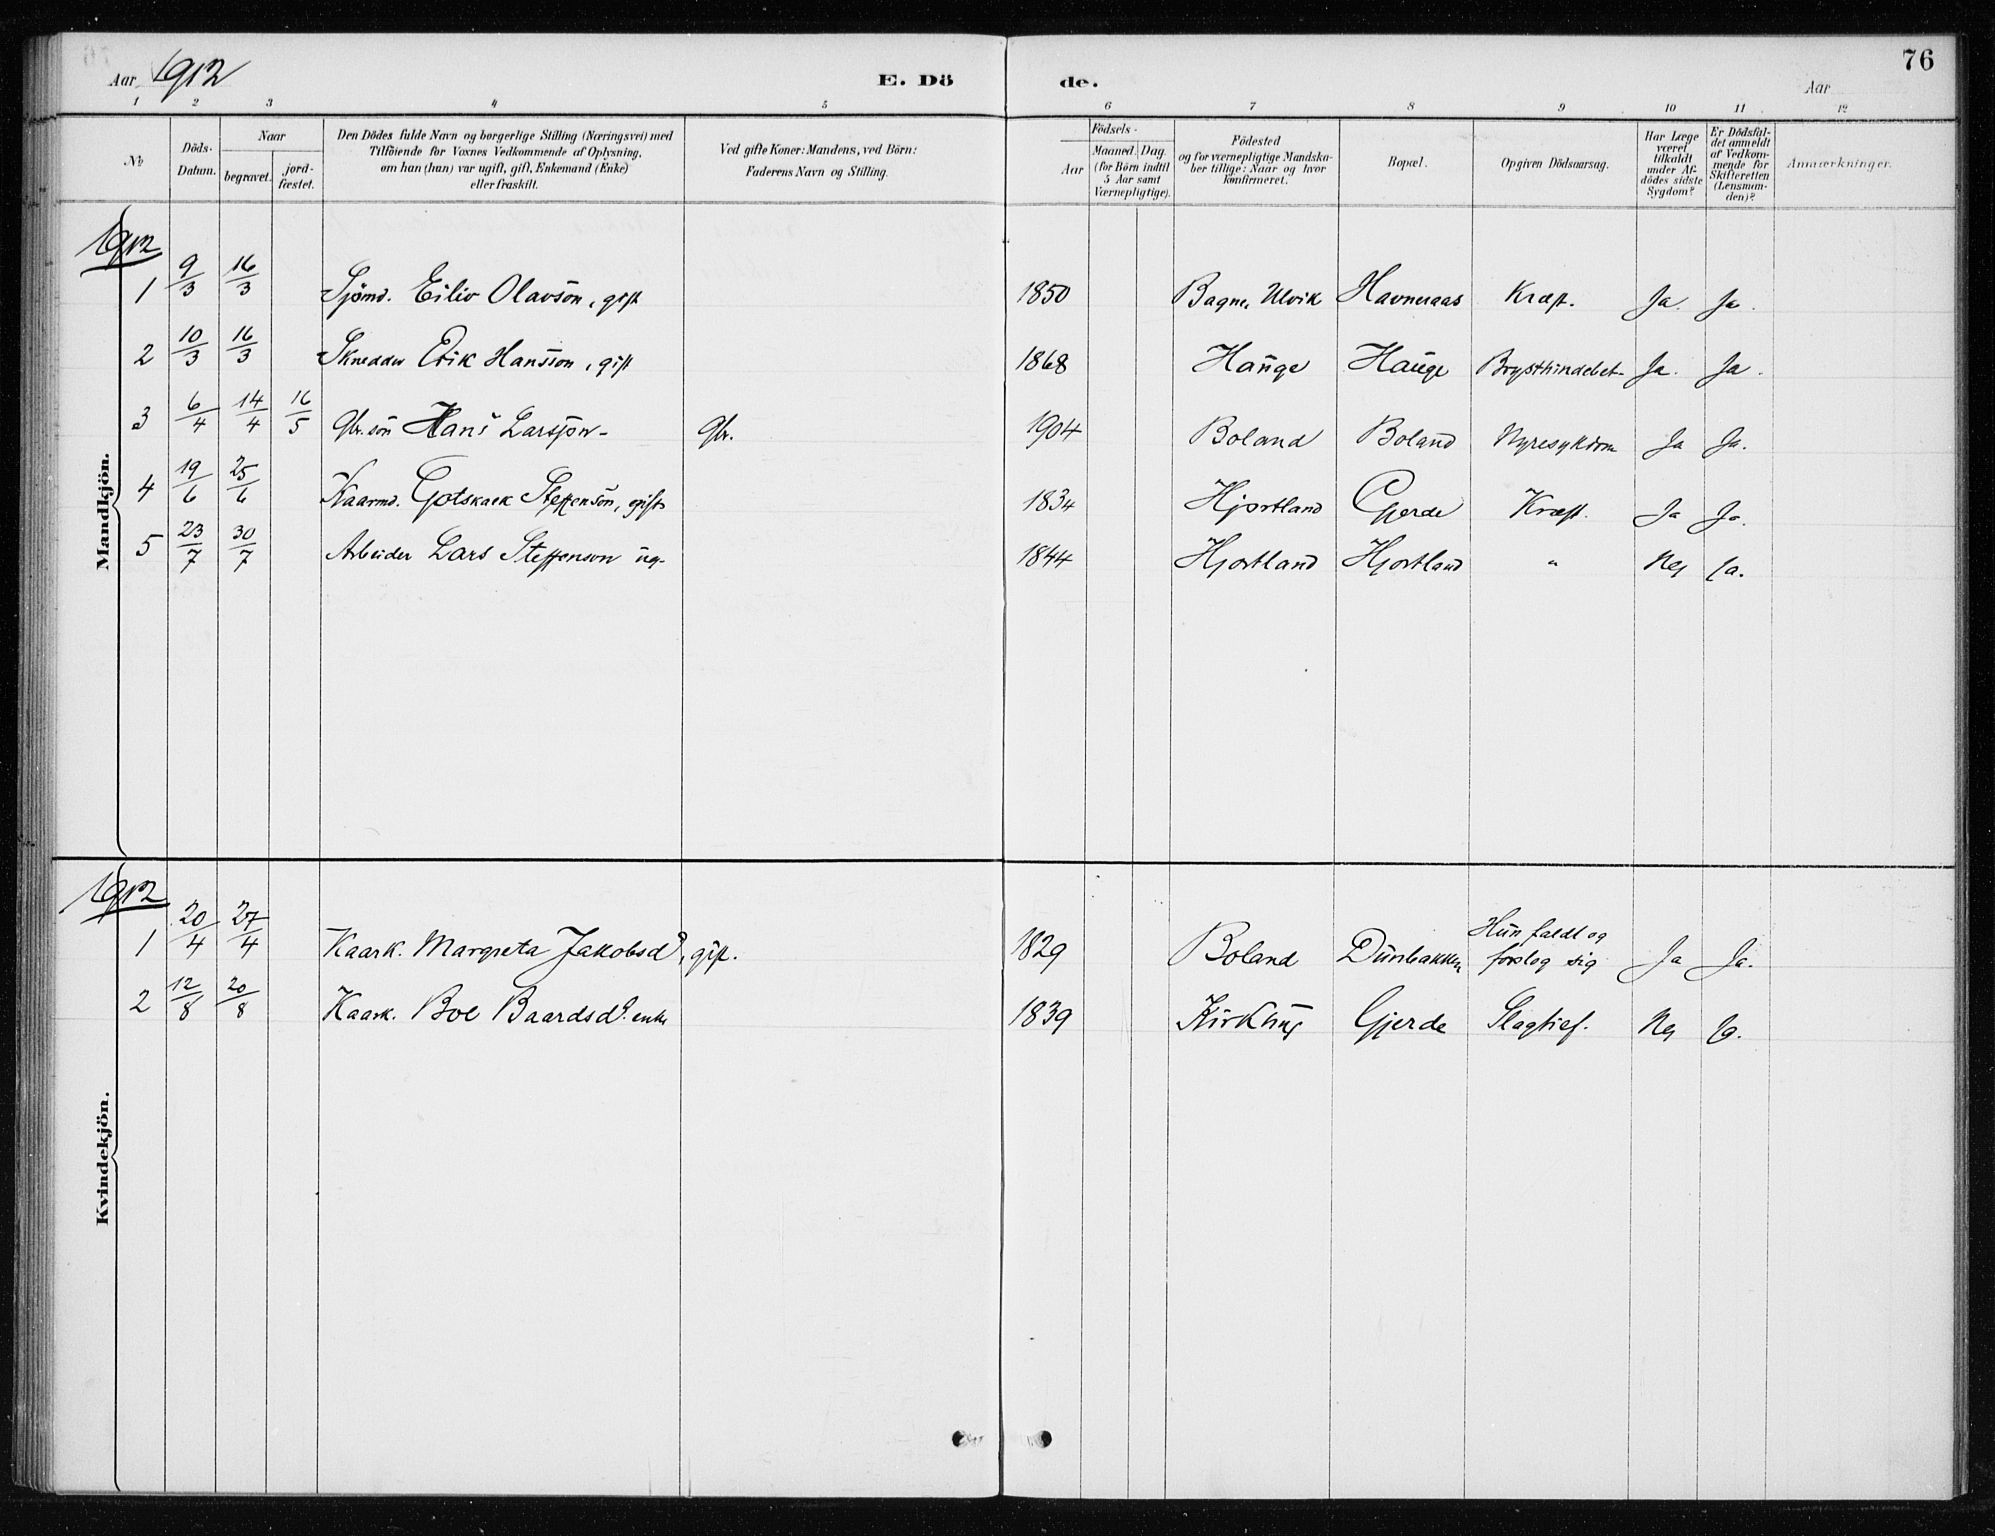 76
Aar 1912 E. Dö de. Aar
1 2 3 4 5 6 7 8 9 10 11 12
№ Döds-Datum. Naar begravet. jord-fæstet.
Den Dödes fulde Navn og borgerlige Stilling (Næringsvei) med
Tilföiende for Voxnes Vedkommende af Oplysning,
om han (hun) var ugift, gift, Enkemand (Enke)
eller fraskilt.
Ved gifte Koner: Mandens, ved Börn:
Faderens Navn og Stilling.
Födsels-
Aar Maaned. Dag.
(for Börn indtil
5 Aar samt
Værnepligtige).
Födested
og for værnepligtige Mandska-
ber tillige: Naar og hvor
konfirmeret.
Bopæl.
Opgiven Dödsaarsag.
Har Læge
været
tilkaldt
under Af-
dödes sidste
Sygdom?
Er Dödsfal-
det anmeldt
af Vedkom-
mende for
Skifteretten
(Lensman-
den)?
Anmærkninger.
Mandkjön.
1912
1 9/3 16/3 Sjömd. Eiliv Olavson, gift 1850 Bagne, Ulvik Havneraas Kræft. Ja. Ja.
2 10/3 16/3 Sknedder Erik Hansson, gift 1868 Hauge Hauge Brysthindebet- Ja. Ja.
3 6/4 14/4 16/5 Gbr. sön Hans Larsson- Gbr. 1904 Boland Boland Nyresykdom Ja Ja.
4 19/6 25/6 Kaarmd. Gotskalk Steffenson, gift 1834 Hjortland Gjerde Kræft. Ja Ja.
5 23/7 30/7 Arbeider Lars Steffenson ug- 1844 Hjortland Hjortland " Nej Ja.
Kvindekjön.
1912
1 20/4 27/4 Kaark. Margreta Jakobsd., gift. 1829 Boland Dunbakken Hun faldt og
forslog sig Ja Ja.
2 12/8 20/8 Kaark. Boe Baardsd. enke 1839 Gjerde Slagtief. Nej Ja.